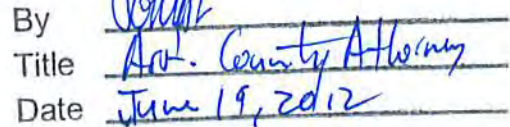 By
Title Asst. County Attorney
Date June 19, 2012